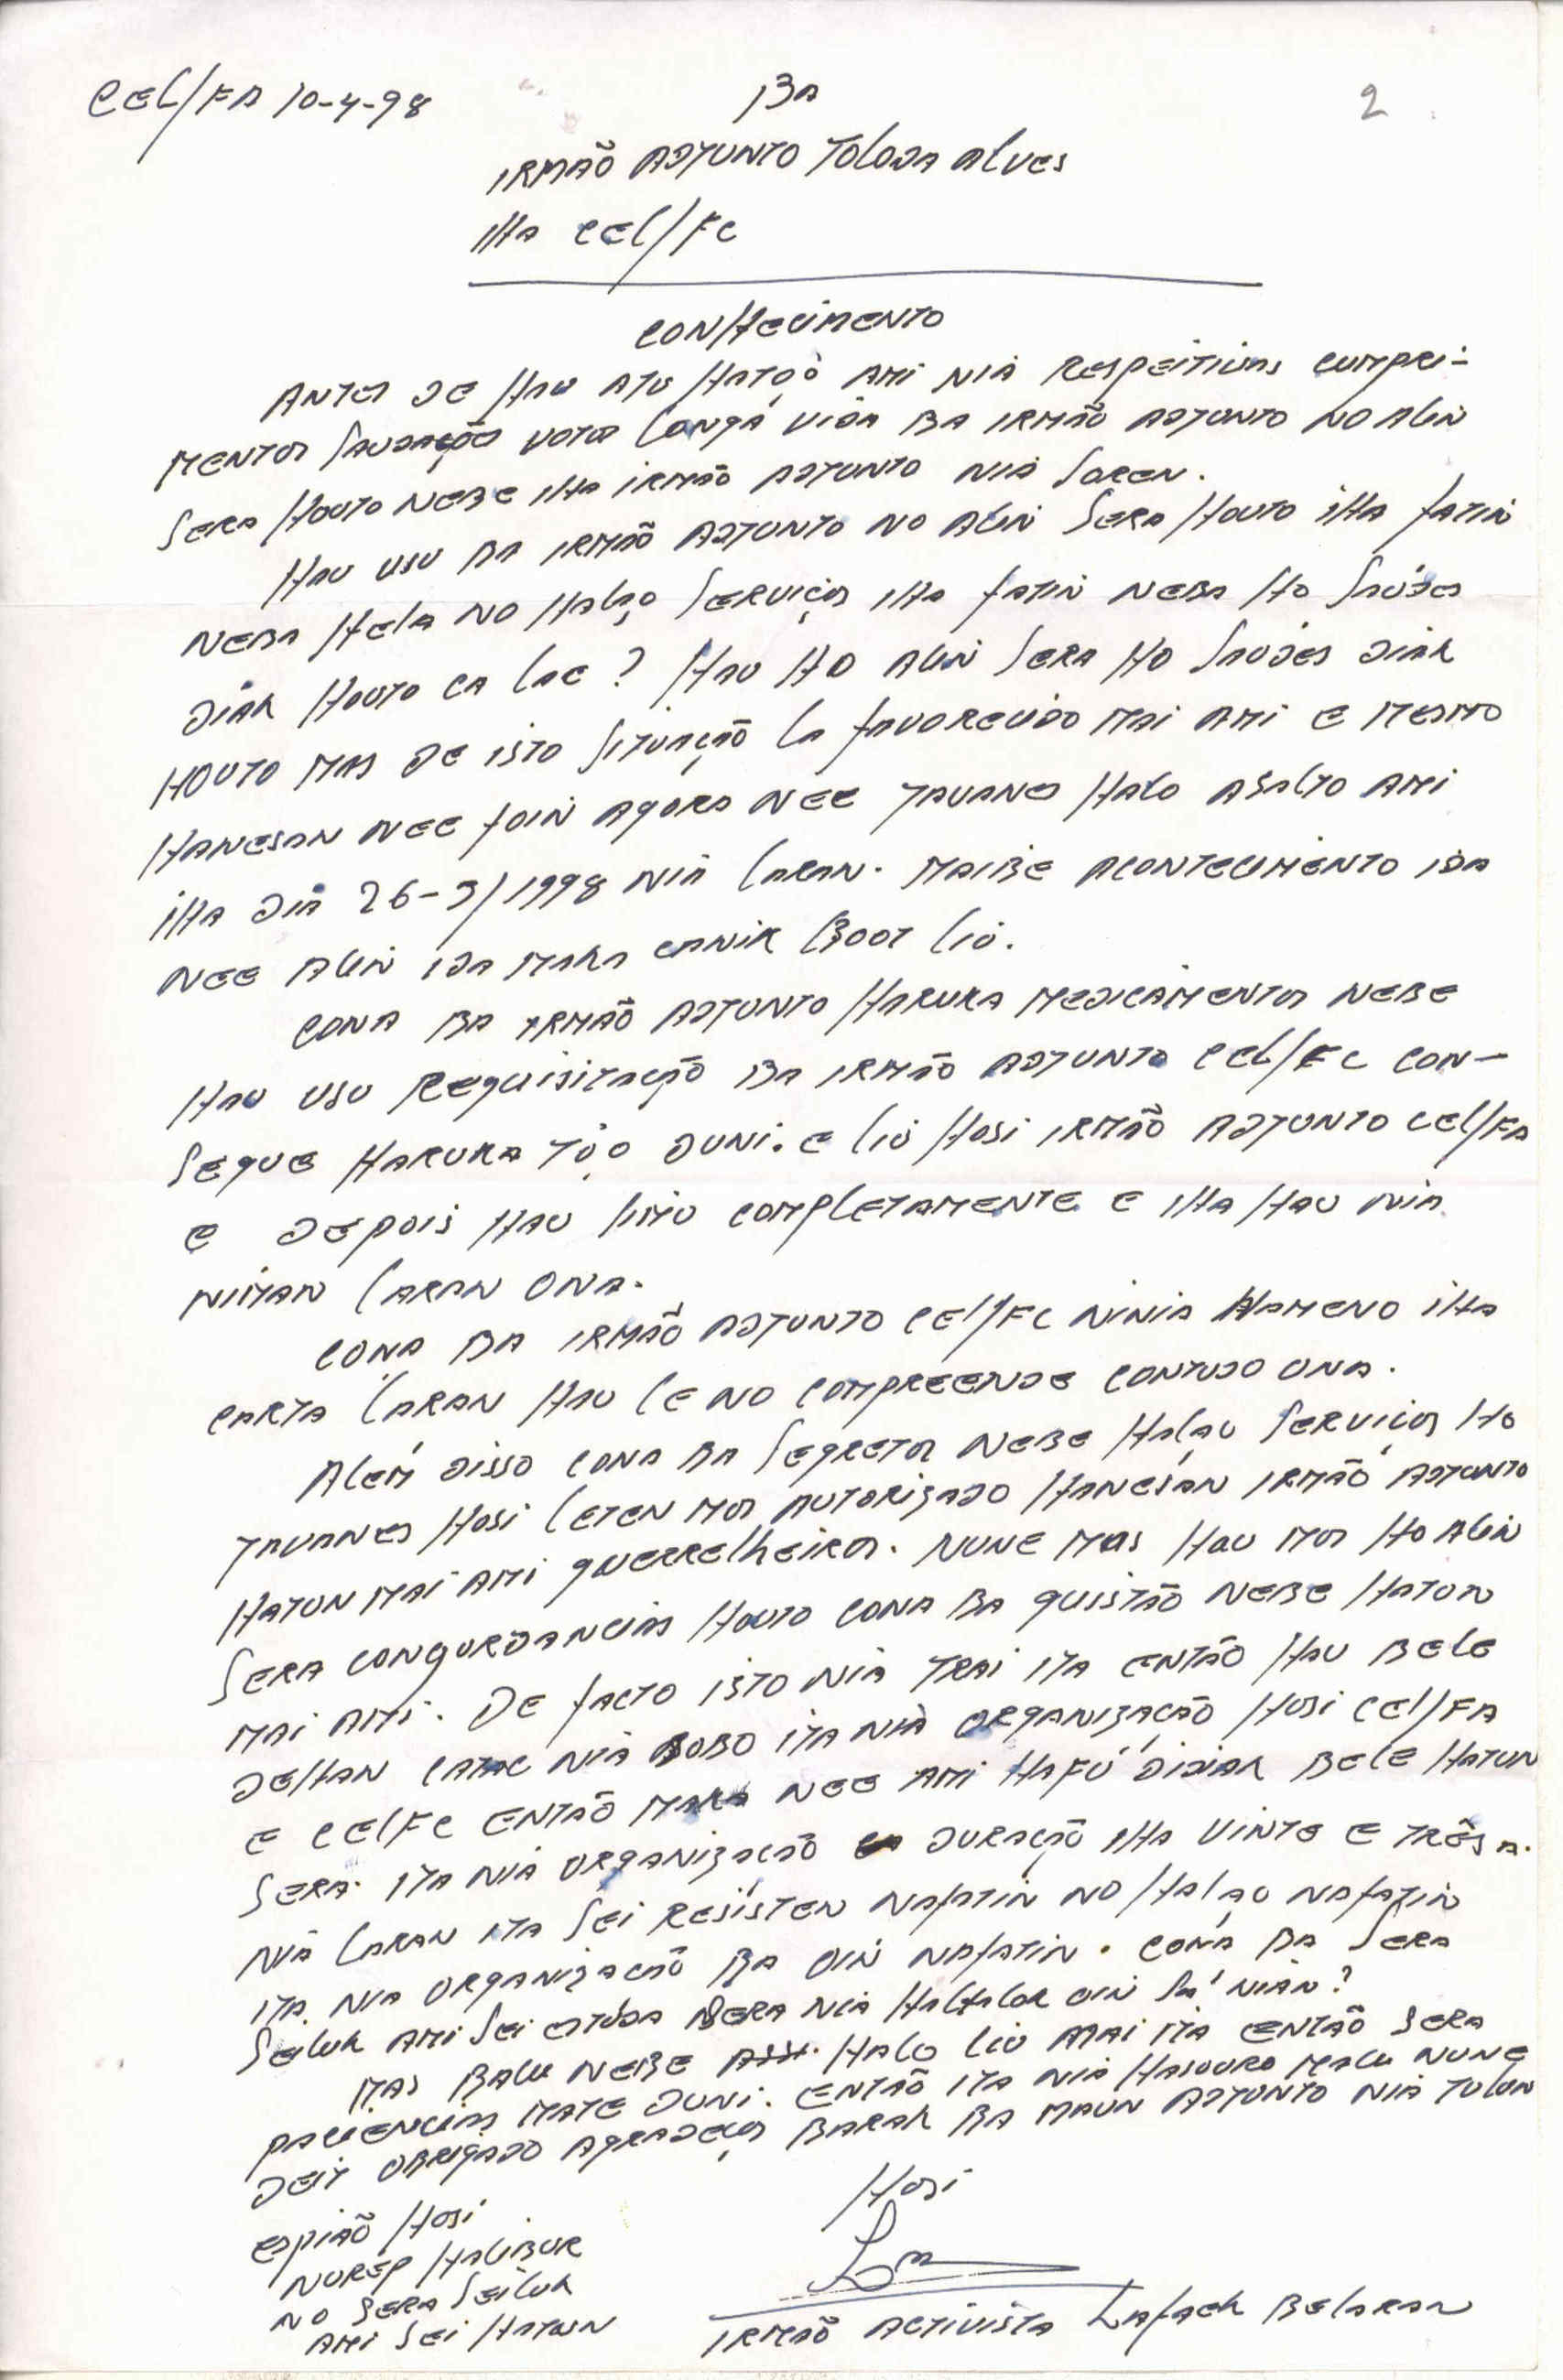 CEL/FA 10-4-98
BA
2
IRMÃO ADJUNTO TOLODA ALVES
IHA CEL/FC
CONHECIMENTO
ANTES DE HAU ATU HATOO AMI NIA RESPEITIVAS CUMPRI-
MENTOS SAUDAÇÕES VOTOS LONGA VIDA BA IRMÃO ADJUNTO NO ALIN
SERA HOUTO NEBE IHA IRMÃO ADJUNTO NIA SOREN.
HAU USU BA IRMÃO ADJUNTO NO ALIN SERA HOUTO IHA FATIN
NEBA HELA NO HALAO SERVIÇOS IHA FATIN NEBA HO SAÚDES
DIAK HOUTO CA LAE? HAU HO ALIN SERA HO SAUDES DIAK
HOUTO MAS DE ISTO SITUAÇÃO LA FAVORECIDO MAI AMI E MESMO
HANESAN NEE FOIN AGORA NEE JAVANES HALO ASALTO AMI
IHA DIA 26-3/1998 NIA LARAN. MAIBE ACONTECIMENTO IDA
NEE ALIN IDA MAKA CANIK BOOT LIO.
CONA BA IRMÃO ADJUNTO HARUKA MEDICAMENTOS NEBE
HAU USU REQUISITAÇÃO BA IRMÃO ADJUNTO CEL/FC CON-
SEGUE HARUKA TOO DUNI. E LIO HOSI IRMÃO ADJUNTO CEL/FA
E DEPOIS HAU SIMU COMPLETAMENTE E IHA HAU NIA
NIMAN LARAN ONA.
CONA BA IRMÃO ADJUNTO CEL/FC NINIA HAMENO IHA
CARTA LARAN HAU LE NO COMPREENDE CONTUDO ONA.
ALEM DISSO CONA BA SEGRETOS NEBE HALAU SERVIÇOS HO
JAVANES HOSI LETEN MOS AUTORIZADO HANESAN IRMÃO ADJUNTO
HATUN MAI AMI GUERRELHEIROS. NUNE MAS HAU MOS HO ALIN
SERA CONGORDANCIAS HOUTO CONA BA QUISTÃO NEBE HATUN
MAI AMI. DE FACTO ISTO NIA TRAI ITA ENTÃO HAU BELE
DEHAN CATAC NIA BOBO ITA NIA ORGANIZAÇÃO HOSI CEL/FA
E CEL/FC ENTÃO MAKA NEE AMI HAFÚ DIDIAK BELE HATUN
SERA. ITA NIA ORGANIZAÇÃO DURAÇÃO IHA VINTE E TRÊS A.
NIA LARAN ITA SEI RESISTEN NAFATIN NO HALAO NAFATIN
ITA NIA ORGANIZAÇÃO BA OIN NAFATIN. CONA BA SERA
SEILUK AMI SEI ESTUDA SERA NIA HALHALOK OIN SA NIAN?
MAS BALU NEBE HALO LIU MAI ITA ENTÃO SERA
PACIENCIAS MATE DUNI. ENTÃO ITA NIA HASOURO MALU NUNE
DEIT OBRIGADO AGRADEÇOS BARAK BA MAUN ADJUNTO NIA TULUN
HOSI
ESPIÃO HOSI
NUREP HALIBUR
NO SERA SEILUK
AMI SEI HATUUN
IRMÃO ACTIVISTA LAFAEK BELARAN